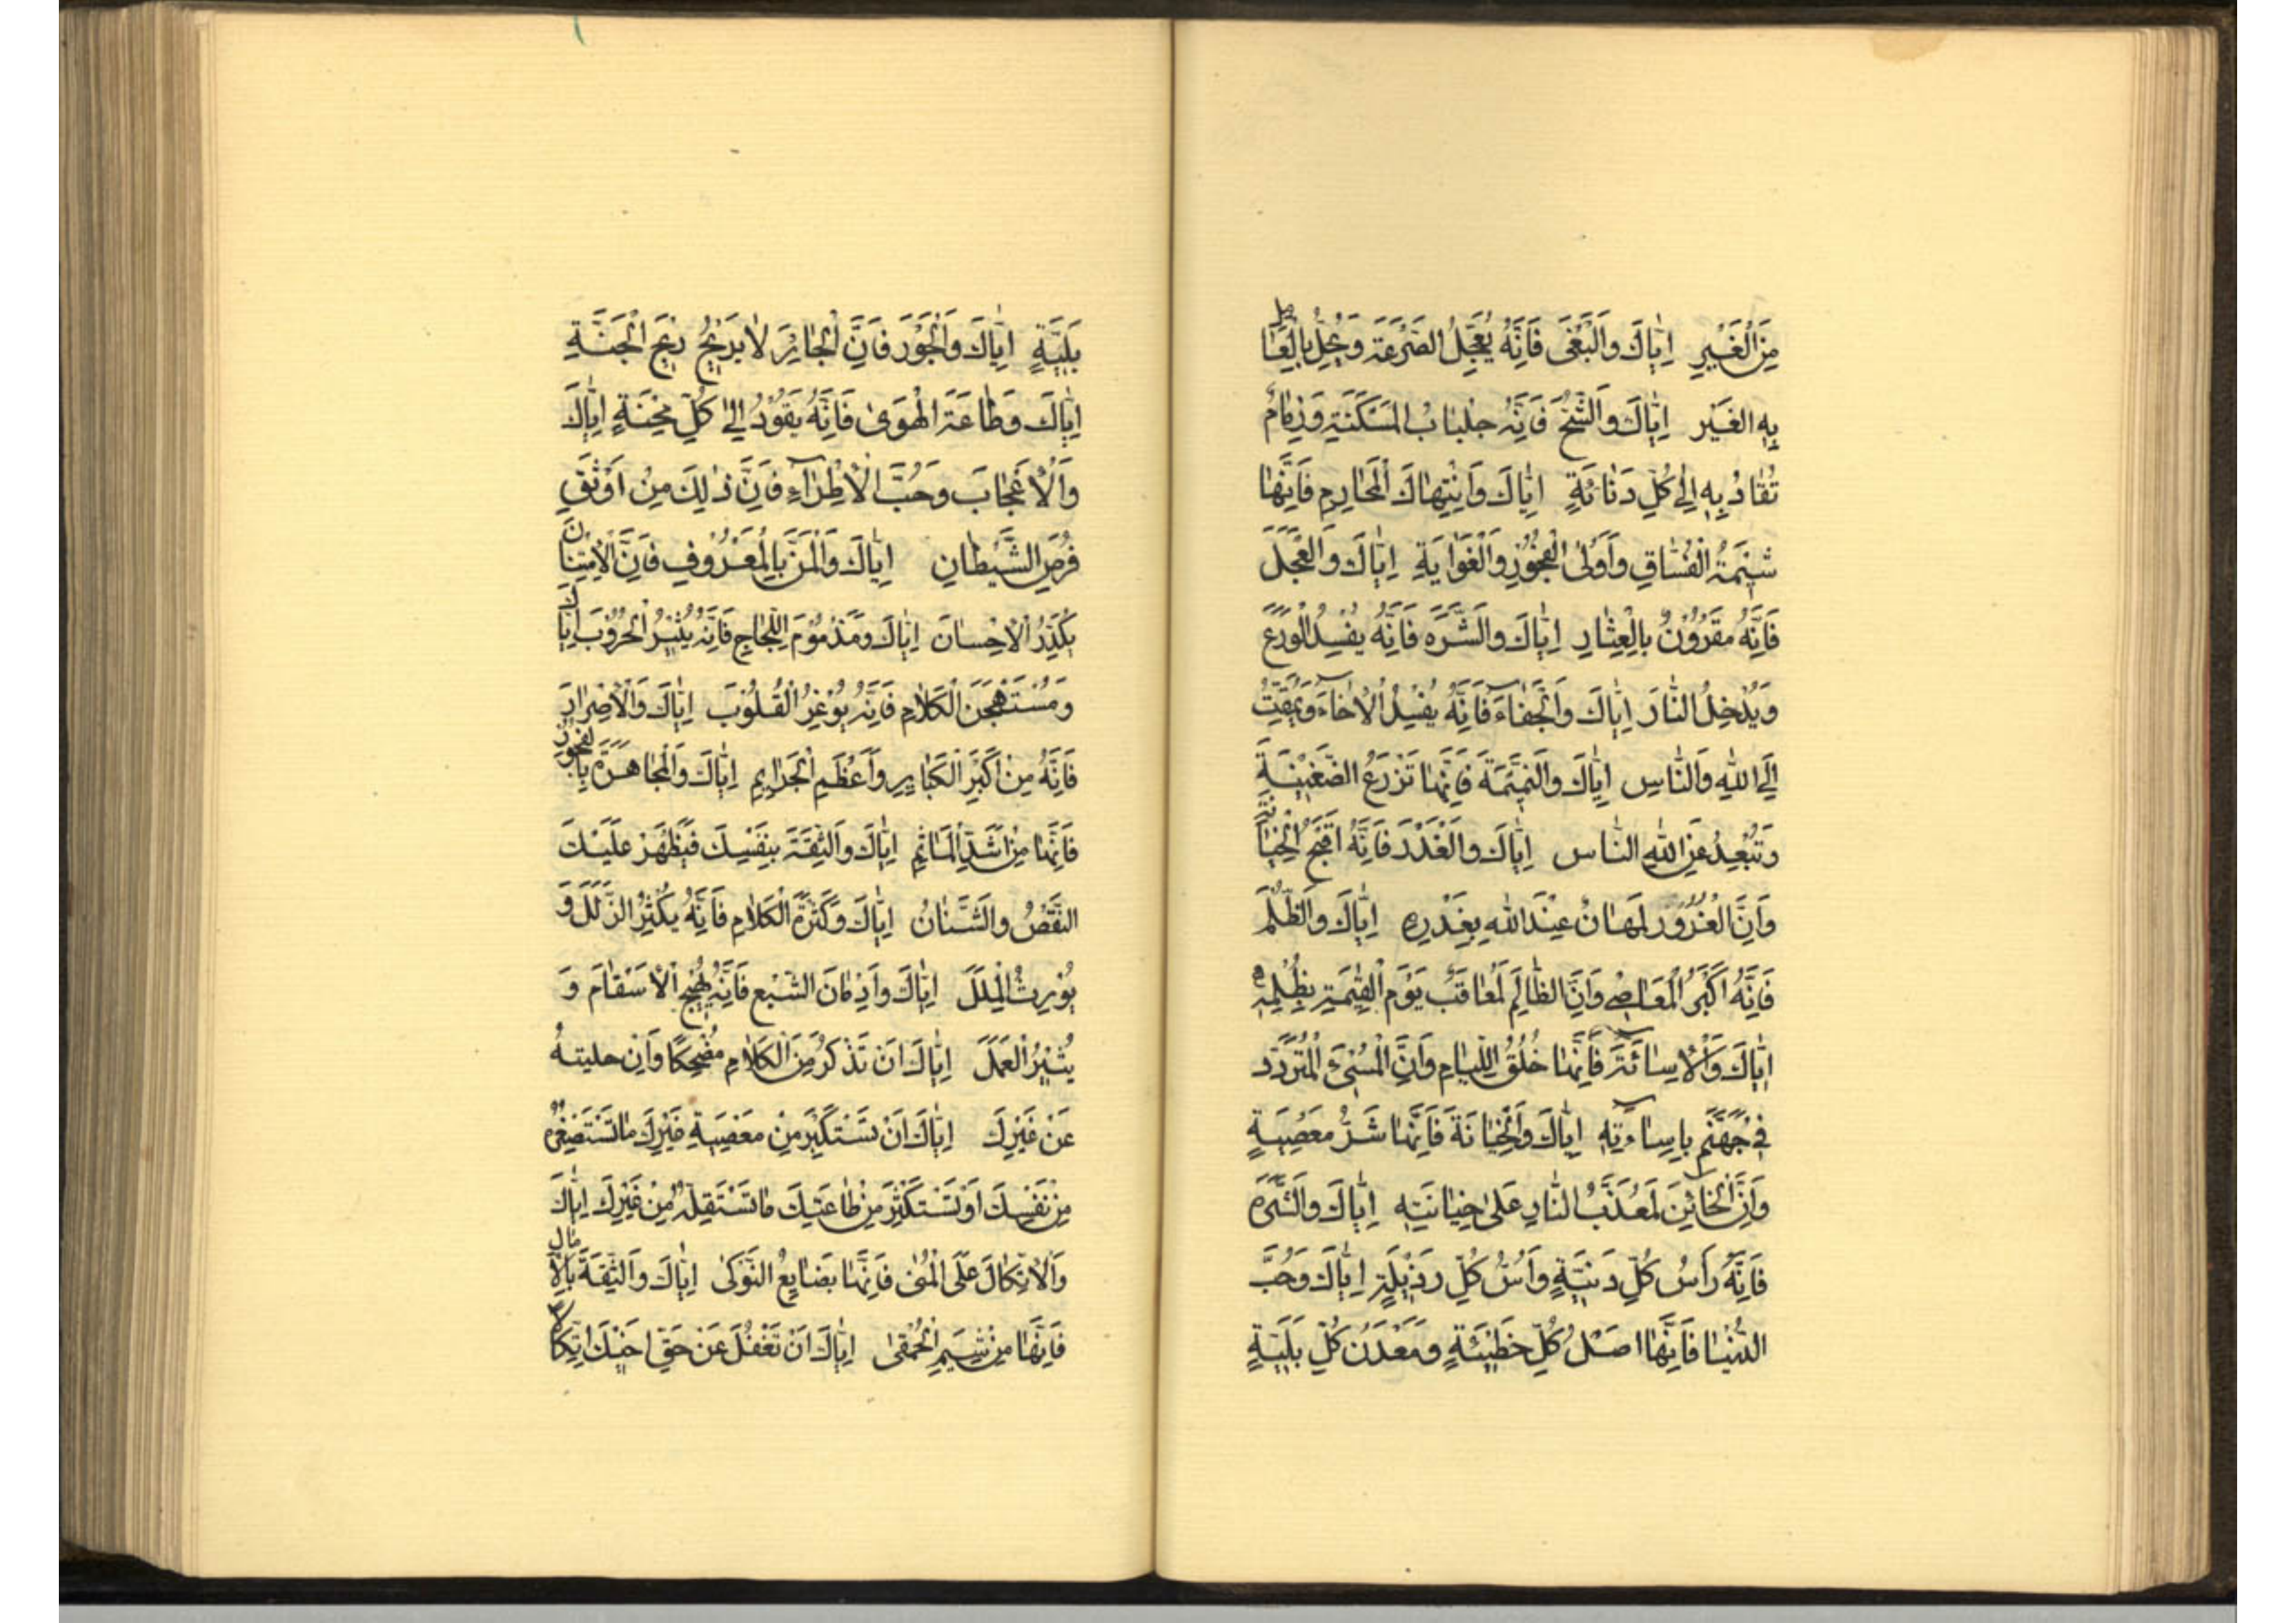 مِنَ الْغَيْرِ اِيّٰاكَ وَالْبَغْىَ فَاِنَّهُ يُعَجِّلُ الصَّرْعَةَ وَيُحِلُّ بِالْعٰامِلِ
بِهِ الغَيْر اِيّٰاكَ وَالشُّحَّ فَاِنَّهُ جِلْبٰابُ الْمَسْكَنَةِ وَزِمٰامٌ
تُقٰادُ بِهِ اِلىٰ كُلِّ دَنٰائَةٍ اِيّٰاكَ وَانْتِهٰاكَ الْمَحٰارِمِ فَاِنَّهٰا
شِيْمَةُ الْفُسّٰاقِ وَاُولىِ الْفُجُوْرِ وَالْغَوٰايَةِ اِيّٰاكَ وَالْعَجَلَ
فَاِنَّهُ مَقْرُوْنٌ بِالْعِثٰارِ اِيّٰاكَ وَالشَّرَهَ فَاِنَّهُ يُفْسِدُ الْوَرَعَ
وَيُدْخِلُ النّٰارَ اِيّٰاكَ وَالْجَفٰاءَ فَاِنَّهُ يُفْسِدُ الْاِخٰاءَ وَيُمْقِتُ
اِلَى اللّٰهِ وَالنّٰاسِ اِيّٰاكَ وَالنَّمِيْمَةَ فَاِنَّهٰا تَزْرَعُ الضَّغِيْنَةَ
وَتُبْعِدُ عَنِ اللّٰهِ النّٰاس اِيّٰاكَ وَالْغَدْرَ فَاِنَّهُ اَقْبَحُ الْخِيٰانَةِ
وَاِنَّ الْغَرُوْرَ لَمُهٰانٌ عِنْدَ اللّٰهِ بِغَدْرِهِ اِيّٰاكَ وَالظُّلْمَ
فَاِنَّهُ اَكْبَرُ الْمَعٰاصِي وَاِنَّ الظّٰالِمَ لَمُعٰاقَبٌ يَوْمَ الْقِيٰمَةِ بِظُلْمِهِ
اِيّٰاكَ وَالْاِسٰائَةَ فَاِنَّهٰا خُلُقُ اللِّئٰامِ وَاِنَّ الْمُسِيْئَ لَمُتَرَدِّد
فِي جَهَنَّمَ بِاِسٰاءَتِهِ اِيّٰاكَ وَالْخِيٰانَةَ فَاِنَّهٰا شَرُّ مَعْصِيَةٍ
وَاِنَّ الْخٰائِنَ لَمُعَذَّبٌ بِالنّٰارِ عَلىٰ خِيٰانَتِهِ اِيّٰاكَ وَالشَّرَهَ
فَاِنَّهُ رَأْسُ كُلِّ دَنِيَّةٍ وَاُسُّ كُلِّ رَذِيْلَةٍ اِيّٰاكَ وَحُبَّ
الدُّنْيٰا فَاِنَّهٰا اَصْلُ كُلِّ خَطِيْئَةٍ وَمَعْدَنُ كُلِّ بَلِيَّةٍ
بَلِيَّةٍ اِيّٰاكَ وَالْجَوْرَ فَاِنَّ الْجٰائِرَ لٰا يَرِيْحُ رِيْحَ الْجَنَّةِ
اِيّٰاكَ وَطٰاعَةَ الْهَوىٰ فَاِنَّهُ يَقُوْدُ اِلىٰ كُلِّ مِحْنَةٍ اِيّٰاكَ
وَالْاِعْجٰابَ وَحُبَّ الْاِطْرٰاءِ فَاِنَّ ذٰلِكَ مِنْ اَوْثَقِ
فُرَصِ الشَّيْطٰانِ اِيّٰاكَ وَالْمَنَّ بِالْمَعْرُوْفِ فَاِنَّ الْاِمْتِنٰانَ
يُكَدِّرُ الْاِحْسٰانَ اِيّٰاكَ وَمَذْمُوْمَ اللِّجٰاجِ فَاِنَّهُ يُثِيْرُ الْحُرُوْبَ اِيّٰاكَ
وَمُسْتَهْجَنَ الْكَلٰامِ فَاِنَّهُ يُوْغِرُ الْقُلُوْبَ اِيّٰاكَ وَالْاِصْرٰارَ
فَاِنَّهُ مِنْ اَكْبَرِ الْكَبٰايِرِ وَاَعْظَمِ الْجَرٰايِمِ اِيّٰاكَ وَالْمُجٰاهَرَةَ بِالْفُجُوْرِ
فَاِنَّهٰا مِنْ اَشَدِّ الْمَاٰثِمِ اِيّٰاكَ وَالثِّقَةَ بِنَفْسِكَ فَيَظْهَرَ عَلَيْكَ
النَّقْصُ وَالشَّنٰانُ اِيّٰاكَ وَكَثْرَةَ الْكَلٰامِ فَاِنَّهُ يُكْثِرُ الزَّلَلَ وَ
يُوْرِثُ الْمَلَلَ اِيّٰاكَ وَاِدْمٰانَ الشِّبْعِ فَاِنَّهُ يُهَيِّجُ الْاَسْقٰامَ وَ
يُثِيْرُ الْعِلَلَ اِيّٰاكَ اَنْ تَذْكُرَ مِنَ الْكَلٰامِ مُضْحِكًا وَاِنْ حَكَيْتَهُ
عَنْ غَيْرِكَ اِيّٰاكَ اَنْ تَسْتَكْبِرَ مِنْ مَعْصِيَةِ غَيْرِكَ مٰا تَسْتَصْغِرُهُ
مِنْ نَفْسِكَ اَوْ تَسْتَكْثِرَ مِنْ طٰاعَتِكَ مٰا تَسْتَقِلُّهُ مِنْ غَيْرِكَ اِيّٰاكَ
وَالْاِتِّكٰالَ عَلَى الْمُنىٰ فَاِنَّهٰا بَضٰايِعُ النَّوْكىٰ اِيّٰاكَ وَالثِّقَةَ بِالْاٰمٰالِ
فَاِنَّهٰا مِنْ شِيَمِ الْحُمْقىٰ اِيّٰاكَ اَنْ تَغْفُلَ عَنْ حَقِّ اَخِيْكَ اِتِّكٰالًا